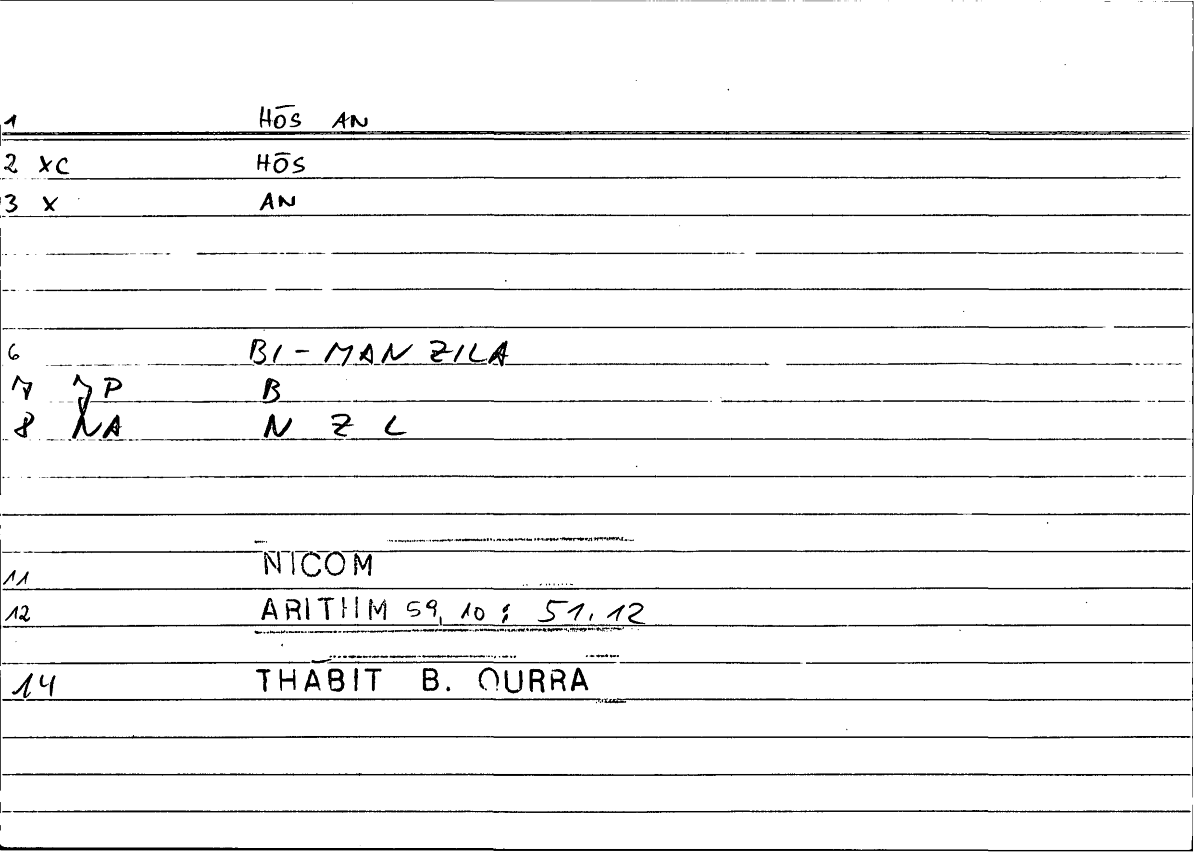 1 HŌS AN
2 XC HŌS
3 X AN
6 BI-MANZILA
7 JP B
8 NA N Z L
11 NICOM
12 ARITHM 59, 10 ; 51.12
14 THĀBIT B. QURRA